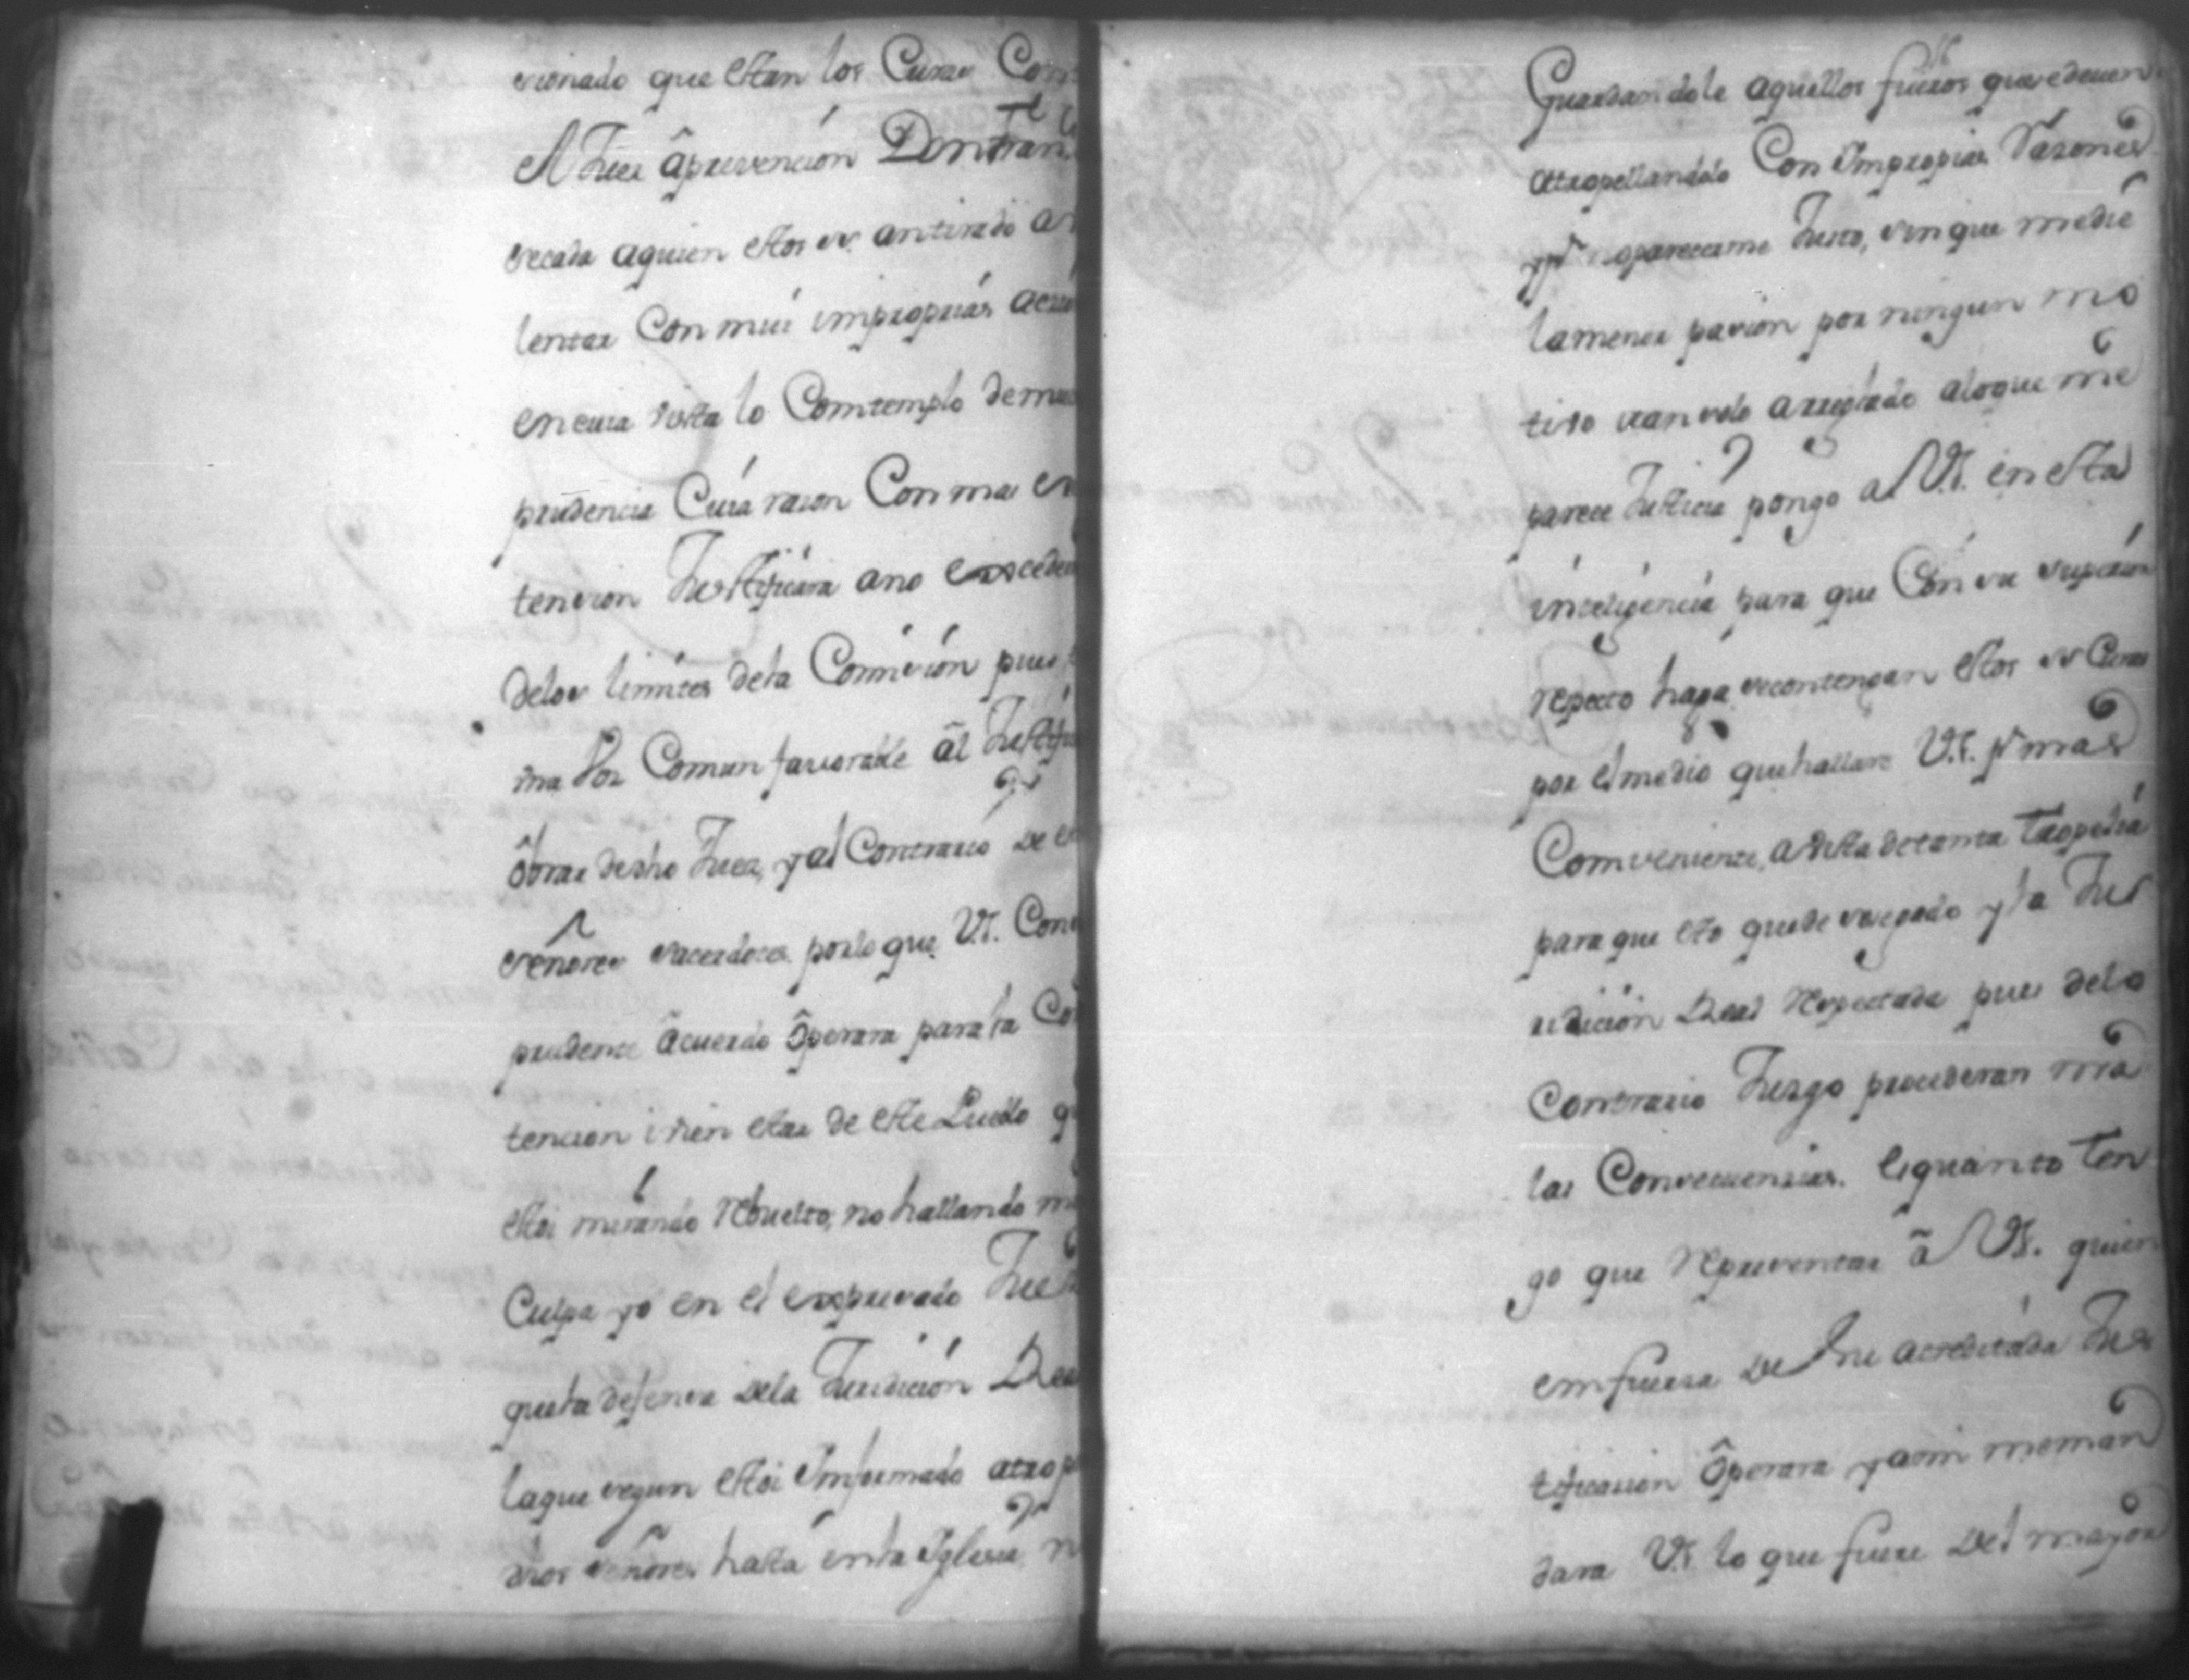 cionado que estan los Curas Con
el Juez âprevención Dn Fran
secada aquien estos ss. antirado a
lentar Con mui improprias accio
encuia vista lo Comtemplo demu
prudencia Cuia rason Con mas ex
tension Justificara ano exsceder
delos limites dela Comisión pues
ma Voz Comun favorable âl Justifi
ôbrar desho Juez, yal Contrario de es
señores sacerdotes porlo que V.S. Con
prudente âcuerdo ôperara parala Co
tencion i vien estar de este Pueblo q
estoi mirando rebuelto, no hallando m
Culpa yo en el expresado Juez
questa defensa dela Jurisdición Rea
laque segun estoi Informado atrop
dhos señores hasta enla Iglesia n
Guardandole aquellos fueros quesedeuen
atropellandolo Con Impropias Rasones
ypr. aparecerme Justo, sin que medie
lamenor pasion por ningun mo
tivo sansolo arreglado aloque me
parece Justicia pongo a V.S. en esta
inteligencia para que Con su superior
respecto haga secontengan estos ss Curas
por el medio que hallare V.S. pr mas
Comveniente, avista detanta tropelia
para que esto quede sosegado y la Jur
isdicion Real respectada pues delo
Contrario Jusgo procederan ma
las Consecuensias. Esquanto ten
go que representar â V.S. quien
emfuersa de su acreditada Jus
tificasion ôperara yami meman
dara V.S. lo que fuere del mayor